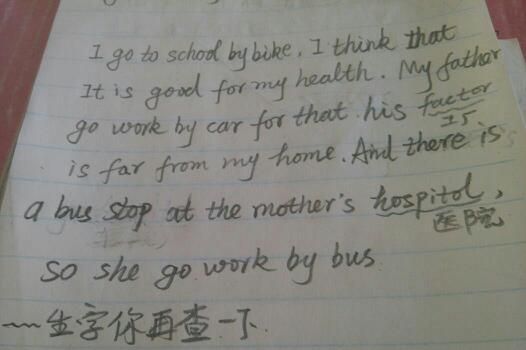 I go to school by bike. I think that
It is good for my health. My father
go work by car for that his factor
工厂
is far from my home. And there is
a bus stop at the mother's hospitol,
医院
so she go work by bus.
生字你再查一下